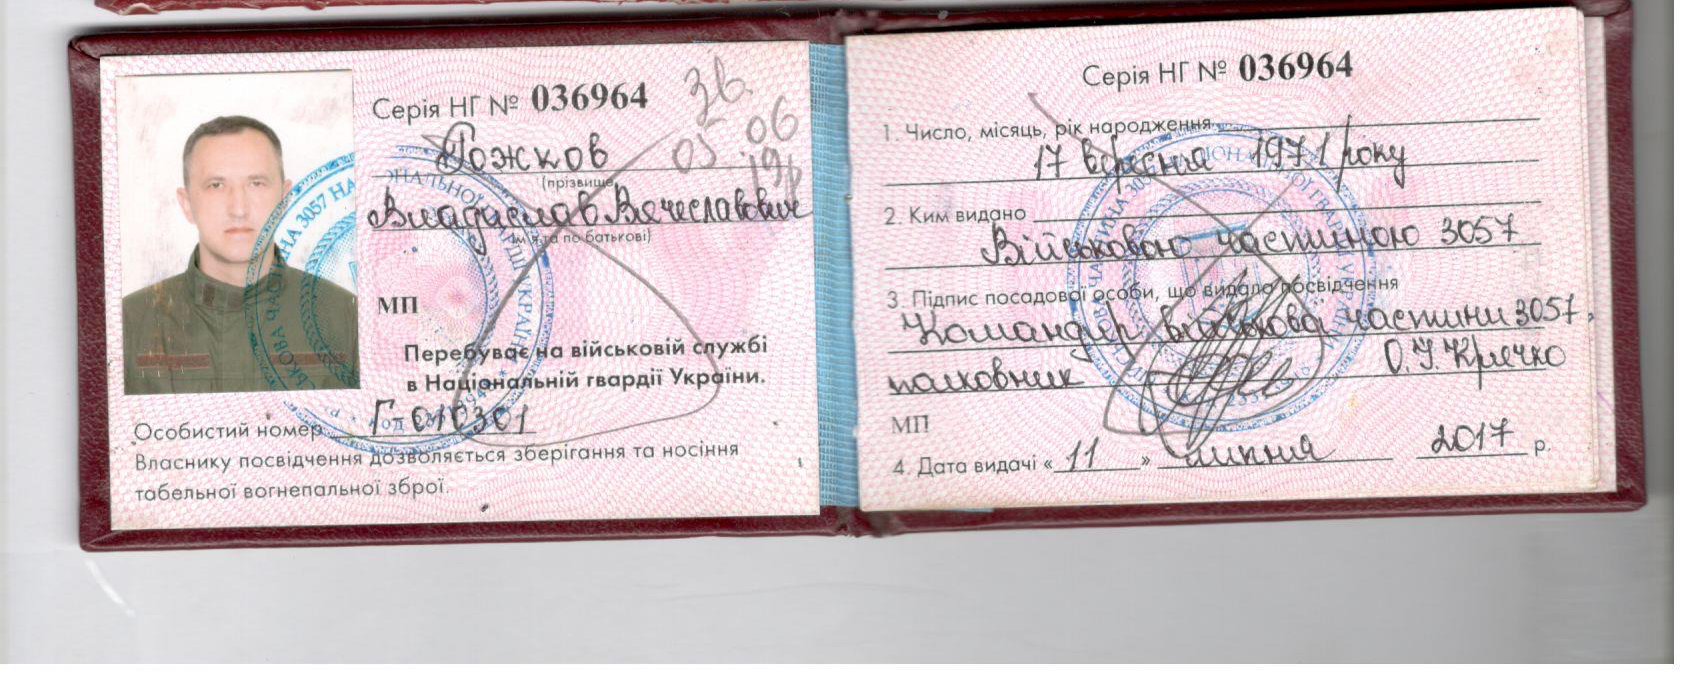 Серія НГ № 036964
Зв.
05.06
19р
Рожков
(прізвище)
Владислав Вячеславович
(ім'я та по батькові)
МП
Перебуває на військовій службі
в Національній гвардії України.
Особистий номер Г-010301
Власнику посвідчення дозволяється зберігання та носіння
табельної вогнепальної зброї.
Серія НГ № 036964
1. Число, місяць, рік народження
17 вересня 1971 року
2. Ким видано
Військовою частиною 3057
3. Підпис посадової особи, що видала посвідчення
Командир військової частини 3057,
полковник О.І. Крячко
МП
4. Дата видачі « 11 » липня 2017 р.